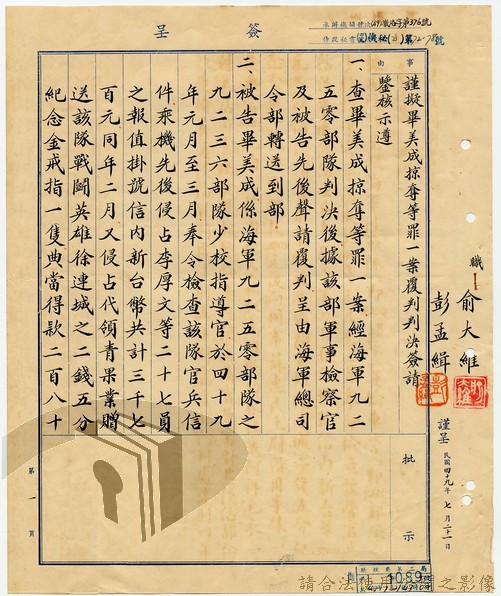 簽呈
事由
謹擬畢美成掠奪等罪一案覆判判決簽請
鑒核示遵
一、查畢美成掠奪等罪一案經海軍九二
五零部隊判決後據該部軍事檢察官
及被告先後聲請覆判呈由海軍總司
令部轉送到部
二、被告畢美成係海軍九二五零部隊之
九二三六部隊少校指導官於四十九
年元月至三月奉令檢查該隊官兵信
件乘機先後侵占李厚文等二十七員
之報值掛號信內新台幣共計三千七
百元同年二月又侵占代領青果業贈
送該隊戰鬪英雄徐連城之二錢五分
紀念金戒指一隻典當得款二百八十
職
俞大維
彭孟緝
謹呈
民國四十九年七月二十一日
批示
第一頁
1089
請合法使用
之影像